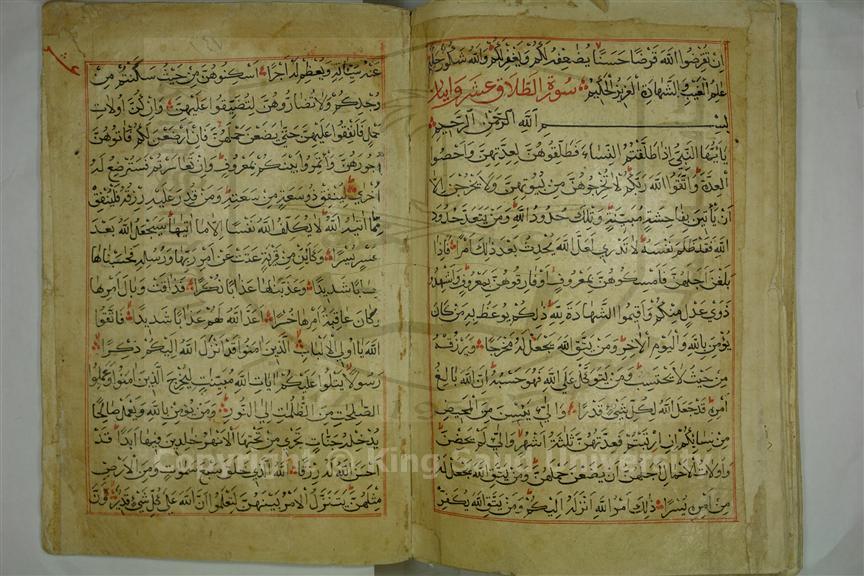 ان تقرضوا الله قرضا حسنا يضعفه لكم ويغفر لكم والله شكور حليم
علم الغيب والشهادة العزيز الحكيم سورة الطلاق عشر وايتان
بسم الله الرحمن الرحيم
يايها النبي اذا طلقتم النساء فطلقوهن لعدتهن واحصوا
العدة واتقوا الله ربكم لا تخرجوهن من بيوتهن ولا يخرجن الا
ان ياتين بفاحشة مبينة وتلك حدود الله ومن يتعد حدود
الله فقد ظلم نفسه لا تدري لعل الله يحدث بعد ذلك امرا فاذا
بلغن اجلهن فامسكوهن بمعروف او فارقوهن بمعروف واشهدوا
ذوي عدل منكم واقيموا الشهادة لله ذلكم يوعظ به من كان
يؤمن بالله واليوم الاخر ومن يتق الله يجعل له مخرجا ويرزقه
من حيث لا يحتسب ومن يتوكل على الله فهو حسبه ان الله بالغ
امره قد جعل الله لكل شيء قدرا والي يئسن من المحيض
من نسائكم ان ارتبتم فعدتهن ثلثة اشهر والي لم يحضن
واولات الاحمال اجلهن ان يضعن حملهن ومن يتق الله يجعل له
من امره يسرا ذلك امر الله انزله اليكم ومن يتق الله يكفر
عنه سياته ويعظم له اجرا اسكنوهن من حيث سكنتم من
وجدكم ولا تضاروهن لتضيقوا عليهن وان كن اولات
حمل فانفقوا عليهن حتى يضعن حملهن فان ارضعن لكم فاتوهن
اجورهن واتمروا بينكم بمعروف وان تعاسرتم فسترضع له
اخرى لينفق ذو سعة من سعته ومن قدر عليه رزقه فلينفق
مما اتيه الله لا يكلف الله نفسا الا ما اتيها سيجعل الله بعد
عسر يسرا وكاين من قرية عتت عن امر ربها ورسله فحاسبناها
حسابا شديدا وعذبناها عذابا نكرا فذاقت وبال امرها
وكان عاقبة امرها خسرا اعد الله لهم عذابا شديدا فاتقوا
الله يا اولي الالباب الذين امنوا قد انزل الله اليكم ذكرا
رسولا يتلوا عليكم ايات الله مبينات ليخرج الذين امنوا وعملوا
الصلحت من الظلمت الى النور ومن يؤمن بالله ويعمل صالحا
يدخله جنات تجري من تحتها الانهر خلدين فيها ابدا قد
احسن الله له رزقا الله الذي خلق سبع سموات ومن الارض
مثلهن يتنزل الامر بينهن لتعلموا ان الله على كل شيء قدير وان
Copyright © King Saud University